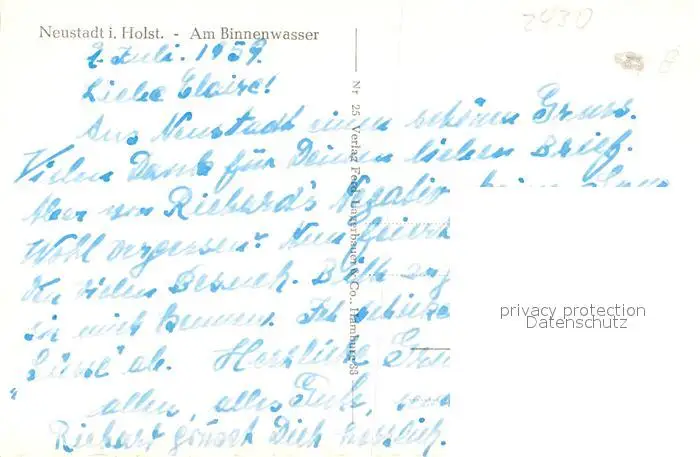 Neustadt i. Holst. - Am Binnenwasser
2430
2. Juli. 1959.
Liebe Claire!
Aus Neustadt einen schönen Gruss.
Vielen Dank für Deinen lieben Brief.
Aber von Richard's Negativ kein
Wohl vergessen? Nun
den vielen Besuch.
in mich kennen. Ich schicke
ab. Herzliche
allen, alles Gute,
Richard grüsst Dich herzlich.
Nr. 25 Verlag Ferd. Lagerbauer & Co., Hamburg 33
privacy protection
Datenschutz